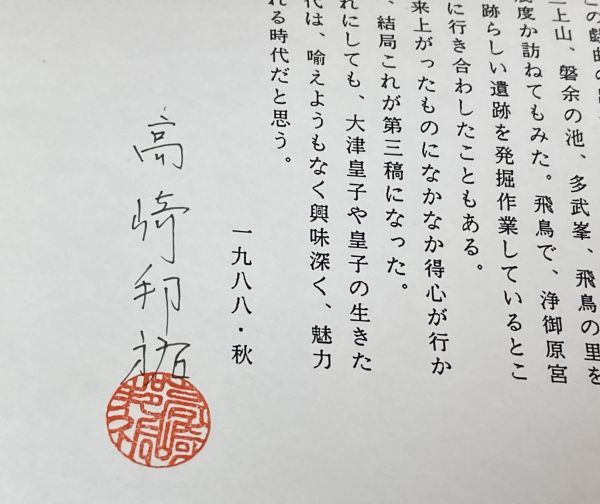 この戯曲の
二上山、磐余の池、多武峯、飛鳥の里を
度か訪ねてもみた。飛鳥で、浄御原宮
跡らしい遺跡を発掘作業しているとこ
に行き合わしたこともある。
来上がったものになかなか得心が行か
、結局これが第三稿になった。
れにしても、大津皇子や皇子の生きた
代は、喩えようもなく興味深く、魅力
れる時代だと思う。
一九八八・秋
高崎邦祐